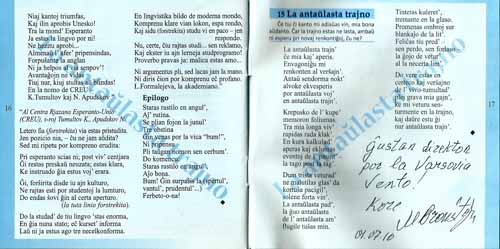 Niaj kantoj triumfas,
Kaj ilin aprobis Unesko!
Tra la mond' Esperanto
Ja estas la lingvo por ni!
Ne hezitu aprobi...
Alimenaŭ l' afer' pripensindas,
Forpuŝante sklavlingvojn!
Ni ja helpos al via speguro!
Avantaĝojn ne vidas
Tiuj nur, kiuj stultas aŭ blindas!
En la nomo de CREU
K.Tumultov kaj N. Apudskov 5.
16
"Al Centra Rjazana Esperanto-Unio
(CREU), s-roj Tumultov K., Apudskov N.
Letero ilia (forostrita) vi estas pristudita.
Jen pozicio nia, – ĉu ne jam aldita?
Sed mi ripetu por kompreno erudita:
Pri esperanto scias ni; post viv' centjara
Ĝi restas preskaŭ nenuzate, estas klara,
Ke instruado ĝia estus voj' erara.
Ĝi, forŝirita disde la ajn kulturo,
Ne rajtas esti por studentoj la lumturo,
Do endas ŝovi ĝin al certa aperturo.
(la tuta linio forstrekita).
Do la studad' de tiu lingvo 'stas enorma,
En ĝia nuna stato; eĉ kurset' informa
Laŭ ni ja estus ago tre neceikonforma.
En lingvistika bildo de moderna mondo,
Kompreno klare vian lokon, espa rondo,
Kaj sidu (forstrekita) studu vi en paco – jen
respondo.
Nu, certe, ĉiu rajtas studi... sen reklamo,
Kaj ekster la ajn lerneja studprogramo!
Proverbo pravas ja: malica estas amo...
Ni argumentus pli, sed lacas jam la mano.
Ni diris ĉion por kompreno eĉ profana.
L.Formalejeva, la akademiano."
Epilogo
Staras rustilo en angul',
Aj, rutina.
Se plian fojon ja latul'
Tre obstina
Ekgapos por la vica "bum!",
Ni ripones,
Pli taŭgan nomon sen cerbum'
Do komencu:
Staras rustilo en angul',
Ajo bona.
Bum! Ĝin surpaŝis la (epitul',
vantul', prudentul'...)
Ferbeto-o-na!
15 La antaŭlasta trajno
Ĉe tiu ĉi kanto mi adiaŭas vin, mia bona
aŭdanto. Ĉar la trajno estas ne lasta, ambaŭ
ni esperu pri novaj renkontiĝoj, ĉu ne?
La antaŭlasta trajn'
ĉe mia kaj' aperis.
Envagoniĝu mi
renkonten al vertajn'.
Antaŭ sendorma nokt'
alvoke ekvesperis
por antaŭlasta voj'
al antaŭlasta ŝtat'.
Krepusko de l' kupe'
memoron foliumas.
Tra mia longa viv'
rapidas rada klak'.
En kura kalkulad'
esperas kaj ekzamas
el antaŭlasta ek'
ĝis antaŭlasta trak'.
Dum vintro tuŝe rul'
ne malutilas glas' da
kortuŝa pacigil',
solene forta vin'.
La antaŭlasta pad',
la ĝuo antaŭlasta
de l' antaŭlasta am'
flugile tuŝas min.
Tinteras kuleret',
tremante en la glaso.
Promenas ombroj sur
blankaĵo de la lit'.
Feliĉas tiu pred'
sen perdo, sen forlaso,
la ĝojo de vetur'
al la necerta limit'.
Do vere estas en
certeco kaj verĝejno
de l' vivo-tumultad'
plej grava mia gajn',
ke mi veturu sen-
tormente en la trajno,
kaj daŭre estu ĝi
la antaŭlasta trajn'.
17
Ĝustan direkton
por la Varsovia
Vento!
Kore
01.07.10